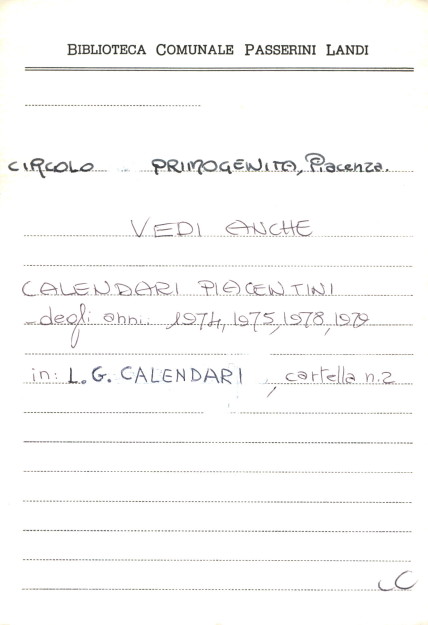 BIBLIOTECA COMUNALE PASSERINI LANDI
CIRCOLO PRIMOGENITA, Piacenza.
VEDI ANCHE
CALENDARI PIACENTINI
degli anni: 1974, 1975, 1978, 1979
in: L.G. CALENDARI, cartella n.2